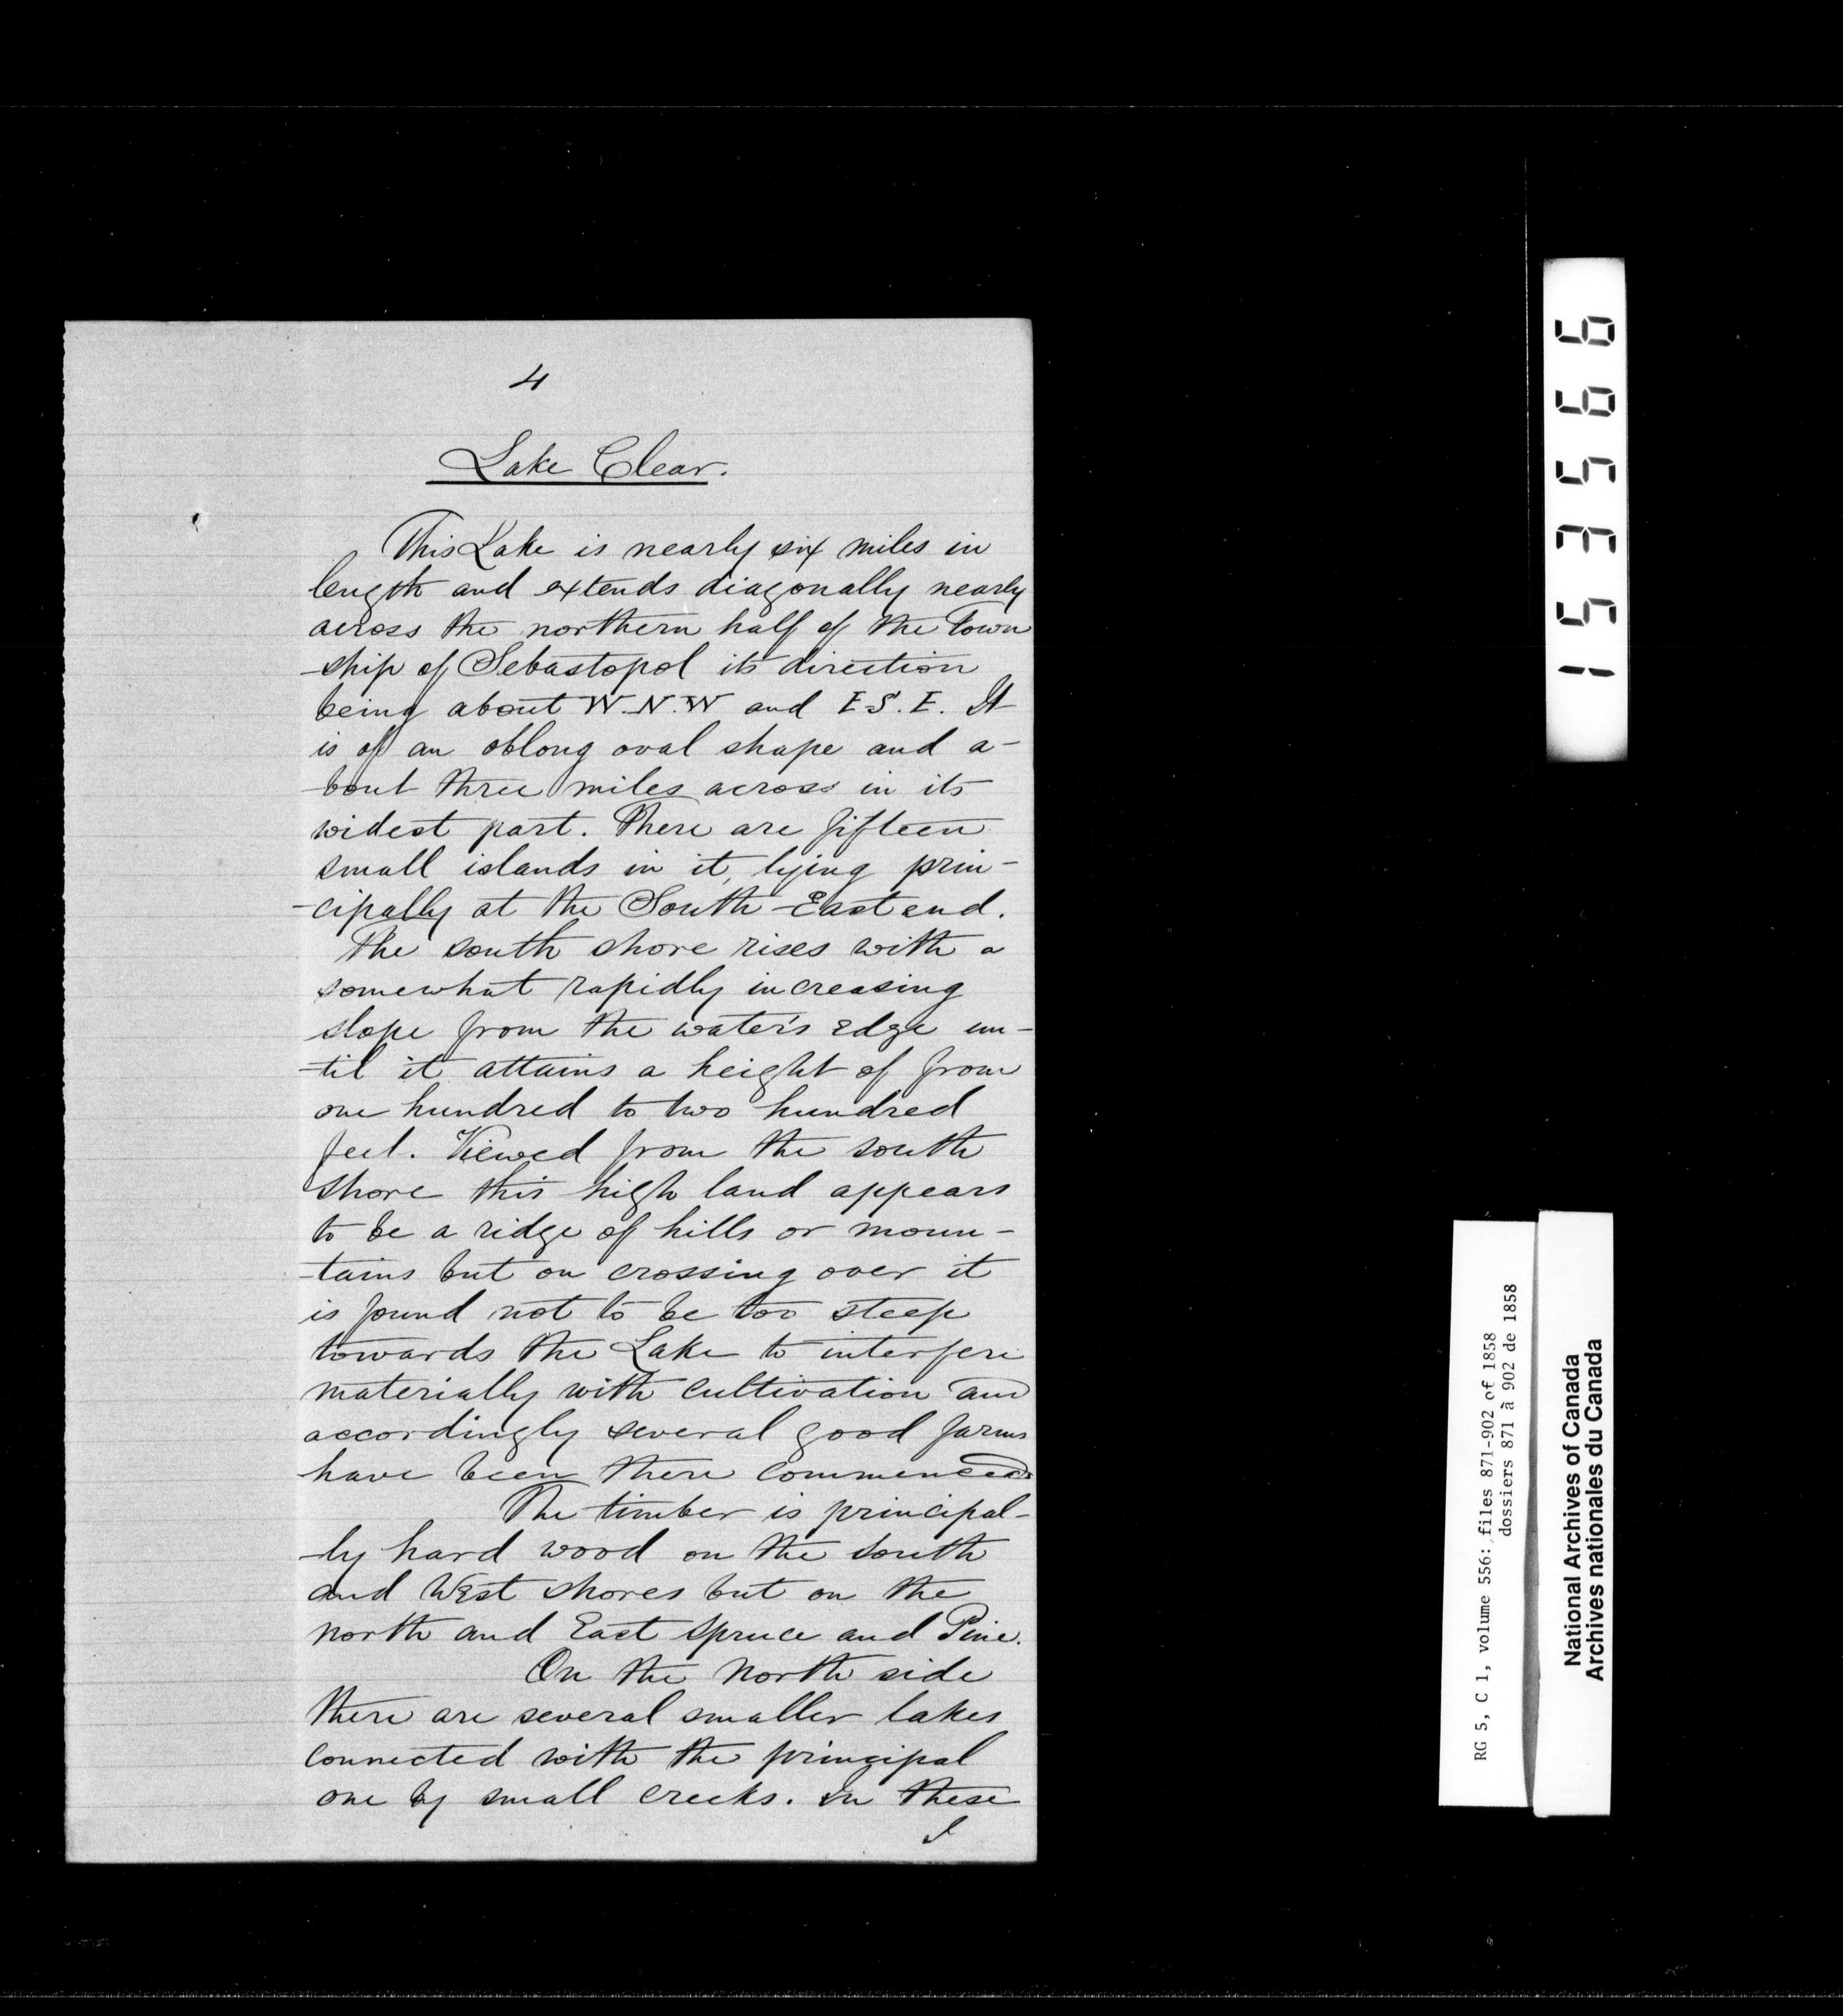 4
Lake Clear.
This Lake is nearly six miles in
length and extends diagonally nearly
across the northern half of the Town
-ship of Sebastopol its direction
being about W.N.W and E.S.E. It
is of an oblong oval shape and a-
-bout three miles across in its
widest part. There are fifteen
small islands in it, lying prin-
-cipally at the South-East end.
The south shore rises with a
somewhat rapidly increasing
slope from the water's edge un-
-til it attains a height of from
one hundred to two hundred
feet. Viewed from the south
shore this high land appears
to be a ridge of hills or moun-
-tains but on crossing over it
is found not to be too steep
towards the Lake to interfere
materially with cultivation and
accordingly several good farms
have been there commenced.
The timber is principal-
-ly hard wood on the south
and West shores but on the
north and East spruce and Pine.
On the North side
there are several smaller lakes
connected with the principal
one by small creeks. In these
I
153566
RG 5, C 1, volume 556: files 871-902 of 1858
dossiers 871 à 902 de 1858
National Archives of Canada
Archives nationales du Canada